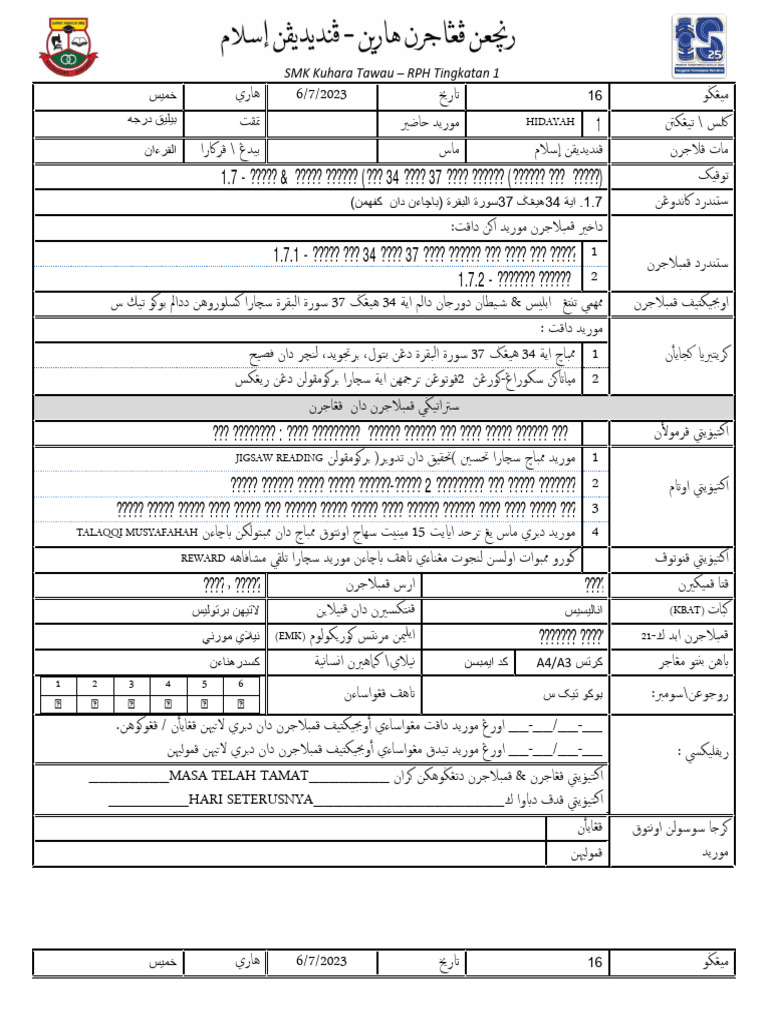 رنچعن ڤڠاجرن هارين - ڤنديديقن إسلام
SMK Kuhara Tawau – RPH Tingkatan 1
ميڠݢو 16 تاريخ 6/7/2023 هاري خميس
كلس \ تيڠكتن 1 HIDAYAH موريد حاضير تمڤت بيليق درجه
مات ڤلاجرن ڤنديديقن إسلام ماس بيدڠ \ ڤركارا القرءان
توڤيک 1.7 - ????? & ????? ?????? (??? 34 ???? 37 ???? ??????) (?????? ??? ?????)
ستندرد كاندوڠن 1.7. اية 34 هيڠݢ 37 سورة البقرة (باچاءن دان كفهمن)
ستندرد ڤمبلاجرن داخير ڤمبلاجرن موريد اكن داڤت:
1 1.7.1 - ????? ??? 34 ???? 37 ???? ?????? ??? ???? ??? ?????
2 1.7.2 - ??????? ??????
اوبجيكتيف ڤمبلاجرن ممهمي تنتڠ ابليس & شيطان دورجان دالم اية 34 هيڠݢ 37 سورة البقرة سچارا كسلوروهن ددالم بوكو تيك س
كريتيريا كجاياٴن موريد داڤت :
1 ممباچ اية 34 هيڠݢ 37 سورة البقرة دڠن بتول، برتجويد، لنچر دان فصيح
2 مياتاكن سكوراڠ-كورڠن 2ڤوتوڠن ترجمهن اية سچارا بركومڤولن دڠن ريڠكس
ستراتيݢي ڤمبلاجرن دان ڤڠاجرن
اكتيۏيتي ڤرمولاٴن ??? ???????? : ???? ????????? ?????? ?????? ??? ???? ????? ?????? ???
اكتيۏيتي اوتام 1 موريد ممباچ سچارا تحسين )تحقيق دان تدوير( بركومڤولن JIGSAW READING
2 ????? ?????? ????? ????? ??????-????? 2 ????????? ??? ????? ???????
3 ????? ????? ???? ????? ??? ?????? ????? ????? ?????? ???? ?????? ???? ???? ????? ???
4 موريد دبري ماس يڠ ترحد ايايت 15 مينيت سهاج اونتوق ممباچ دان ممبتولكن باچاءن TALAQQI MUSYAFAHAH
اكتيۏيتي ڤنوتوڤ ݢورو ممبوات اولسن لنجوت مڠناءي تاهڤ باچاءن موريد سچارا تلقي مشافاهه REWARD
ڤتا ڤميكيرن ????. ارس ڤمبلاجرن ????? , ????
كبات (KBAT) اناليسيس ڤنتكسيرن دان ڤنيلاين لاتيهن برتوليس
ڤمبلاجرن ابد ك-21 ???? ??????? ايليمن مرنتس كوريكولوم (EMK) نيلاي مورني
باهن بنتو مڠاجر كرتس A4/A3 كد ايميسن نيلاي\كماهيرن انسانية كسدر هناءن
روجوعن\سومبر: بوكو تيک س تاهڤ ڤڠواساءن 1 2 3 4 5 6
ريفليكسي : ___-___/___-___ اورڠ موريد داڤت مڠواساءي أوبجيكتيف ڤمبلاجرن دان دبري لاتيهن ڤڠاياٴن / ڤڠوكوهن.
___-___/___-___ اورڠ موريد تيدق مڠواساءي أوبجيكتيف ڤمبلاجرن دان دبري لاتيهن ڤموليهن
اكتيۏيتي ڤڠاجرن & ڤمبلاجرن دتڠݢوهكن كران __________MASA TELAH TAMAT__________
اكتيۏيتي ڤدڤ دباوا ك ______________________HARI SETERUSNYA__________
كرجا سوسولن اونتوق موريد ڤڠاياٴن
ڤموليهن
ميڠݢو 16 تاريخ 6/7/2023 هاري خميس